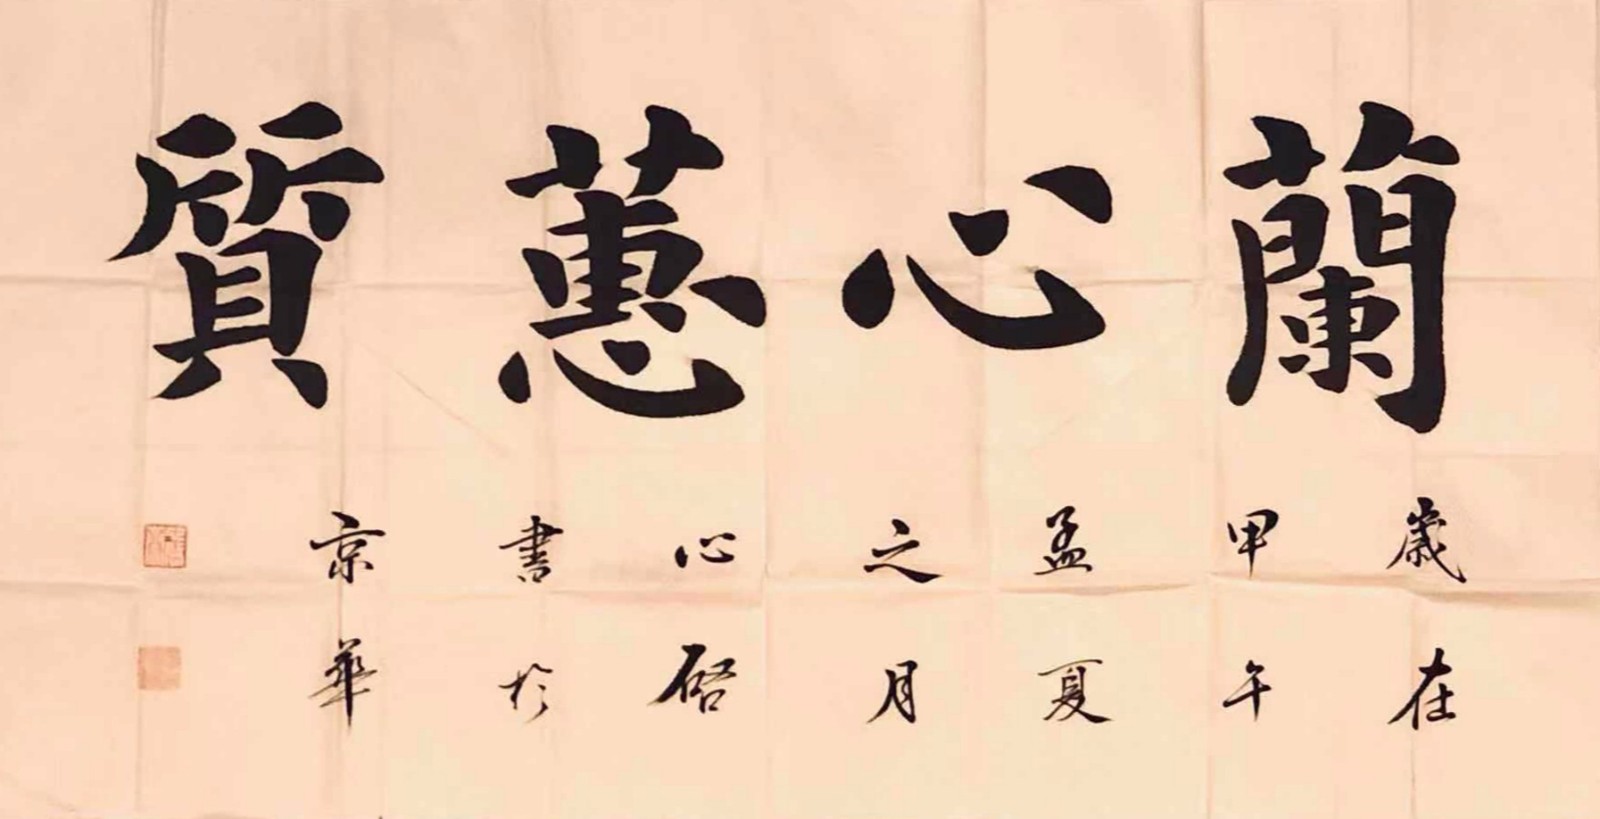 蘭心蕙質
歲在
甲午
孟夏
之月
心啓
書於
京華